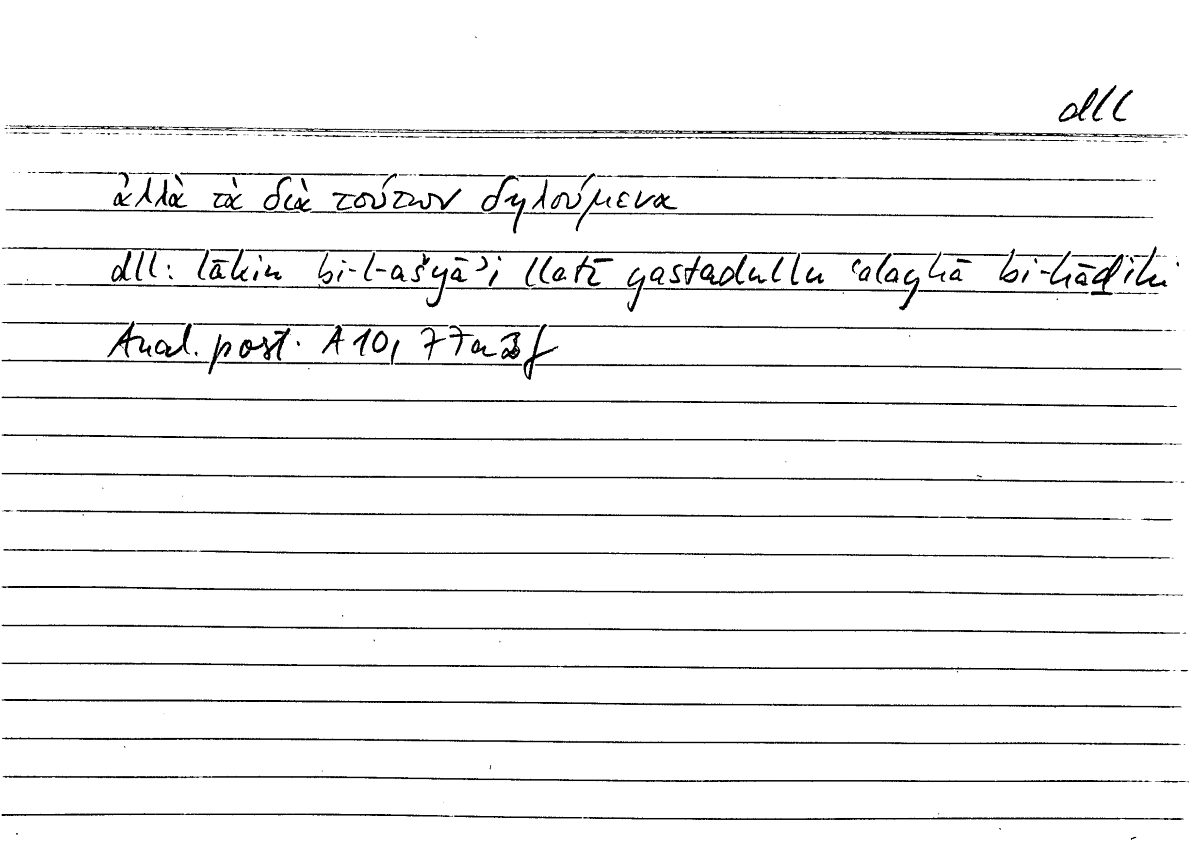 dll
ἀλλὰ τὰ διὰ τούτων δηλούμενα
dll: lākin bi-l-ašyāʾi llatī yastadullu ʿalayhā bi-hāḏihi
Anal. post. A 10, 77a3f